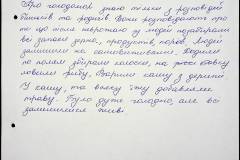 Про голодомор знаю тільки з розповідей
батьків та родичів. Вони розповідали про
те що тоді насильно у людей позабирали
всі запаси зерна, продуктів, корів. Людей
залишили на самовиживання. Ходили
по полям збирали колоски, на ставку
ловили рибу. Варили кашу з
У кашу, та всяку їжу добавляли
траву. Було дуже голодно, але всі
залишилися живі